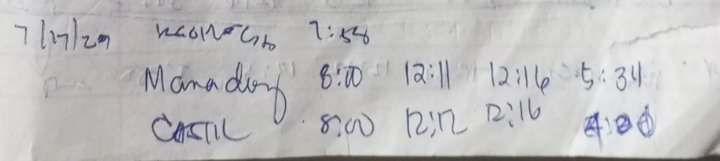 7/17/29 7:58
Manadong 8:00 12:11 12:16 5:34
CASTIL 8:00 12:12 12:16